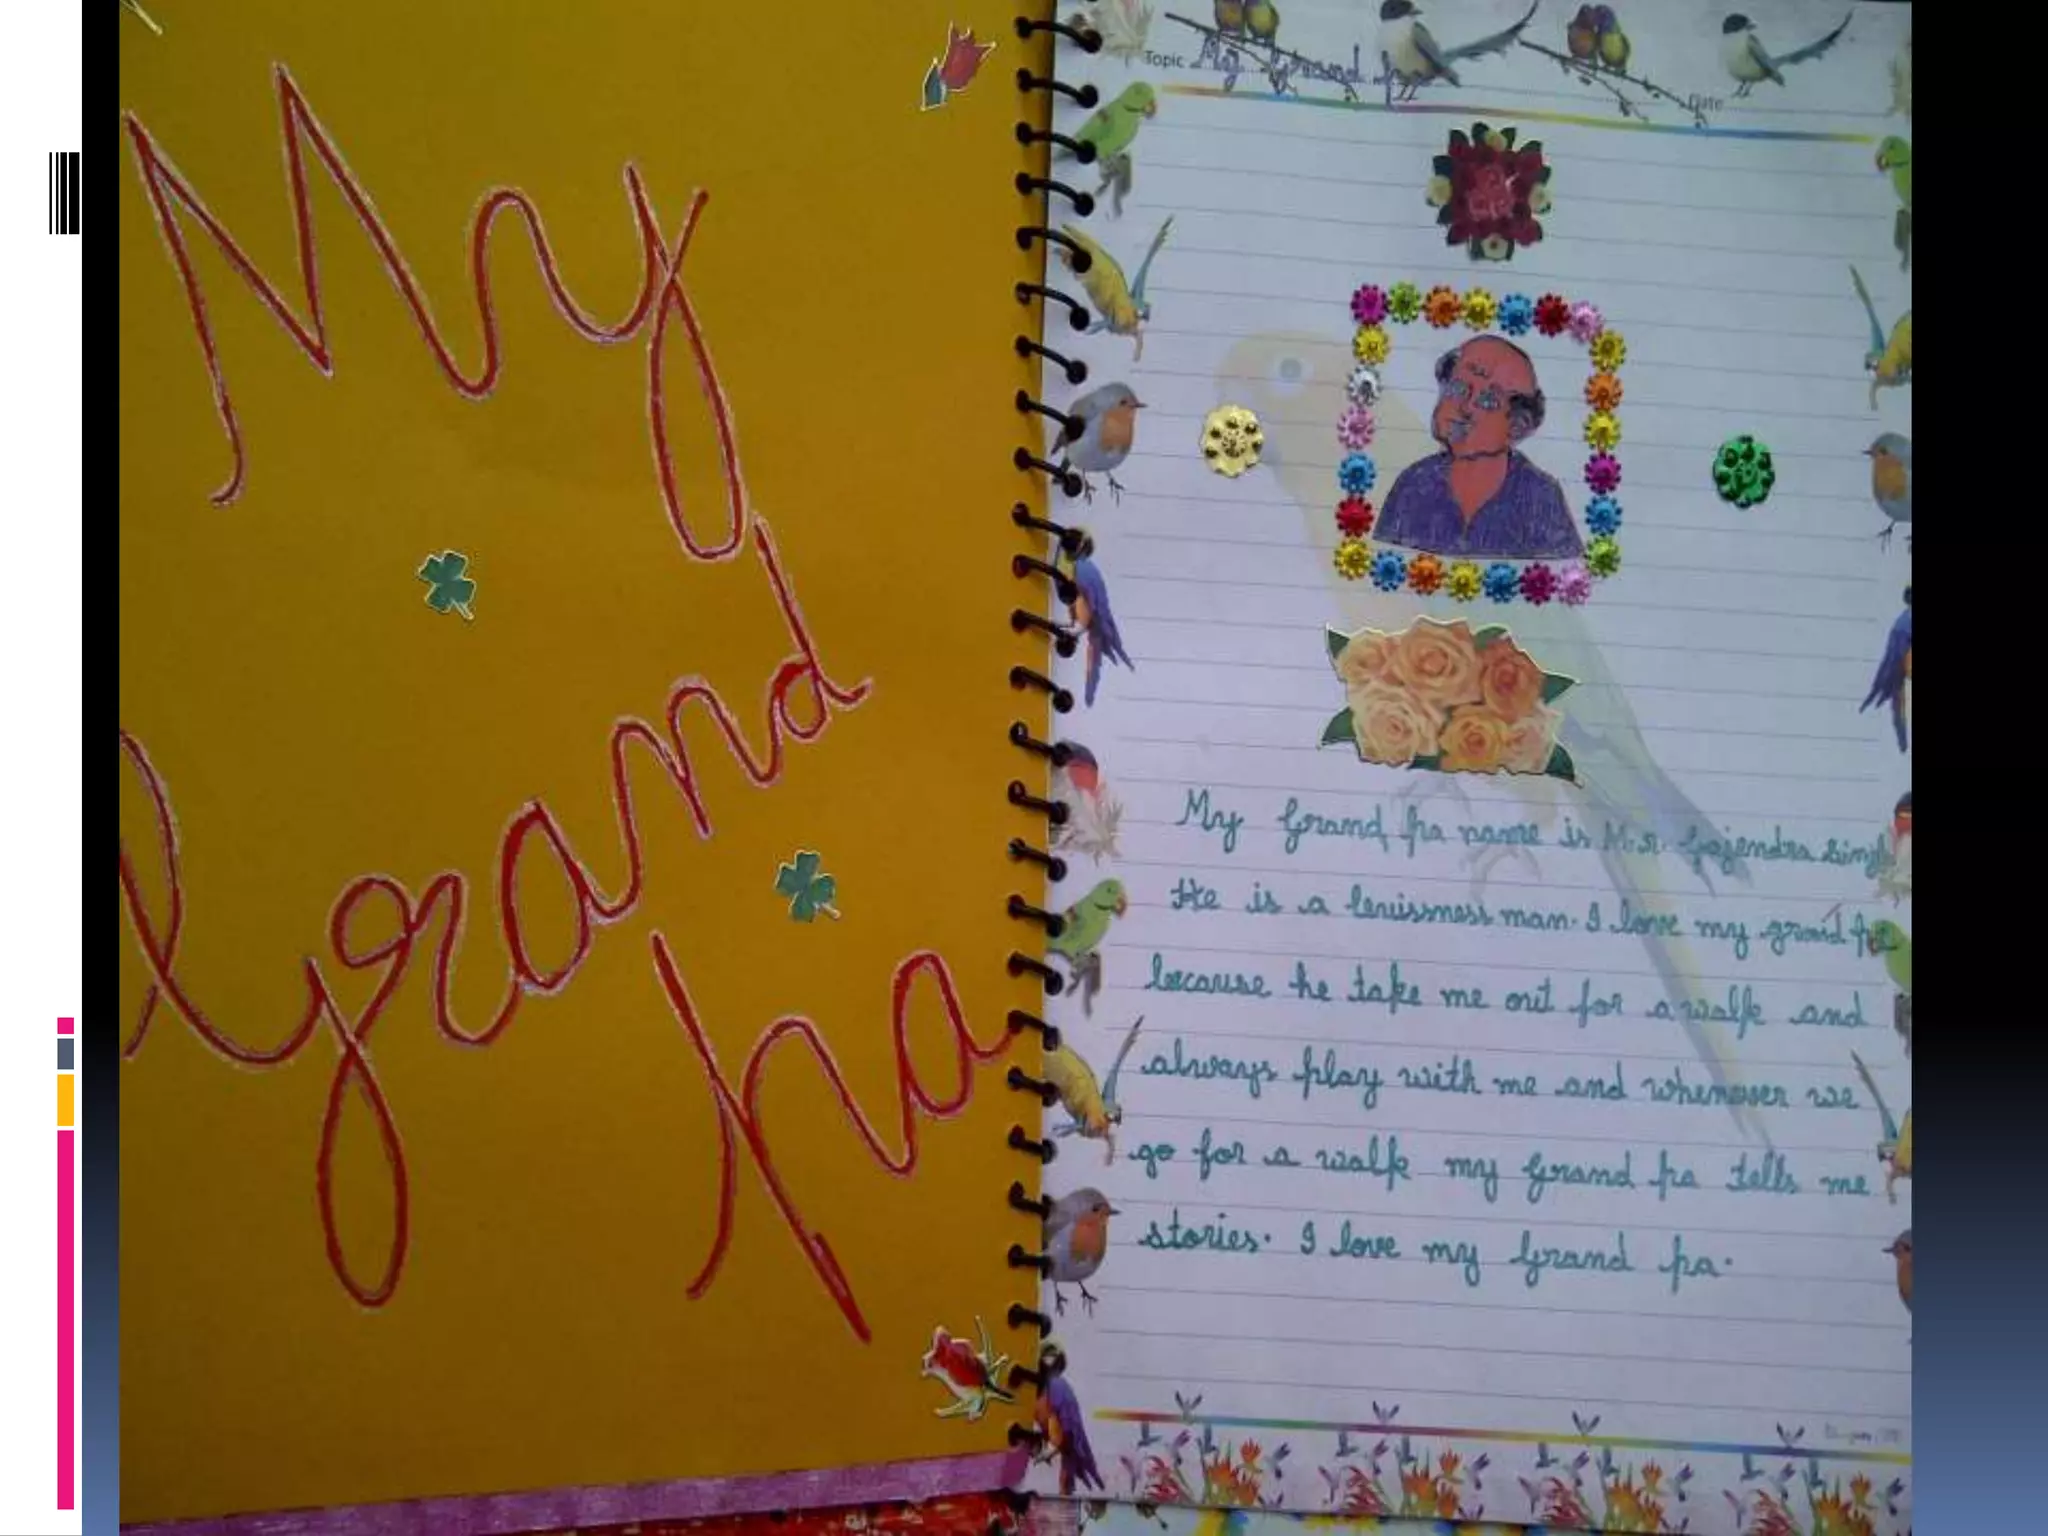 My
Grand
pa
Topic My Grand pa
Date
My Grand pa name is Mr. Gajendra Singh
He is a beuissness man. I love my grand pa
because he take me out for a walk and
always play with me and whenever we
go for a walk my Grand pa tells me
stories. I love my Grand pa.